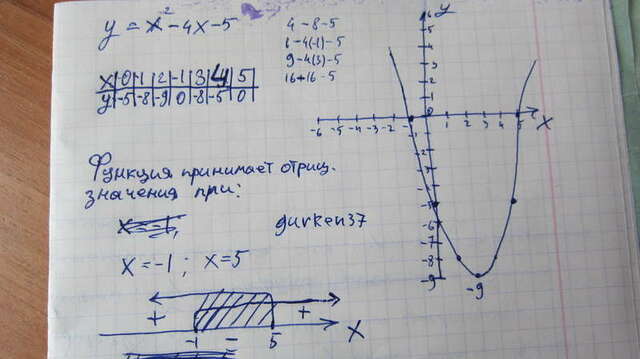 y = x² - 4x - 5
4 - 8 - 5
1 - 4(-1) - 5
9 - 4(3) - 5
16 + 16 - 5
x 0 1 2 -1 3 4 5
y -5 -8 -9 0 -8 -5 0
Функция принимает отриц.
значения при:
x = -1,
gurken37
x = -1 ; x = 5
+ - +
-1 5 x
y
6
5
4
3
2
1
0
-6 -5 -4 -3 -2 -1 1 2 3 4 5 x
-6
-7
-8
-9
-9